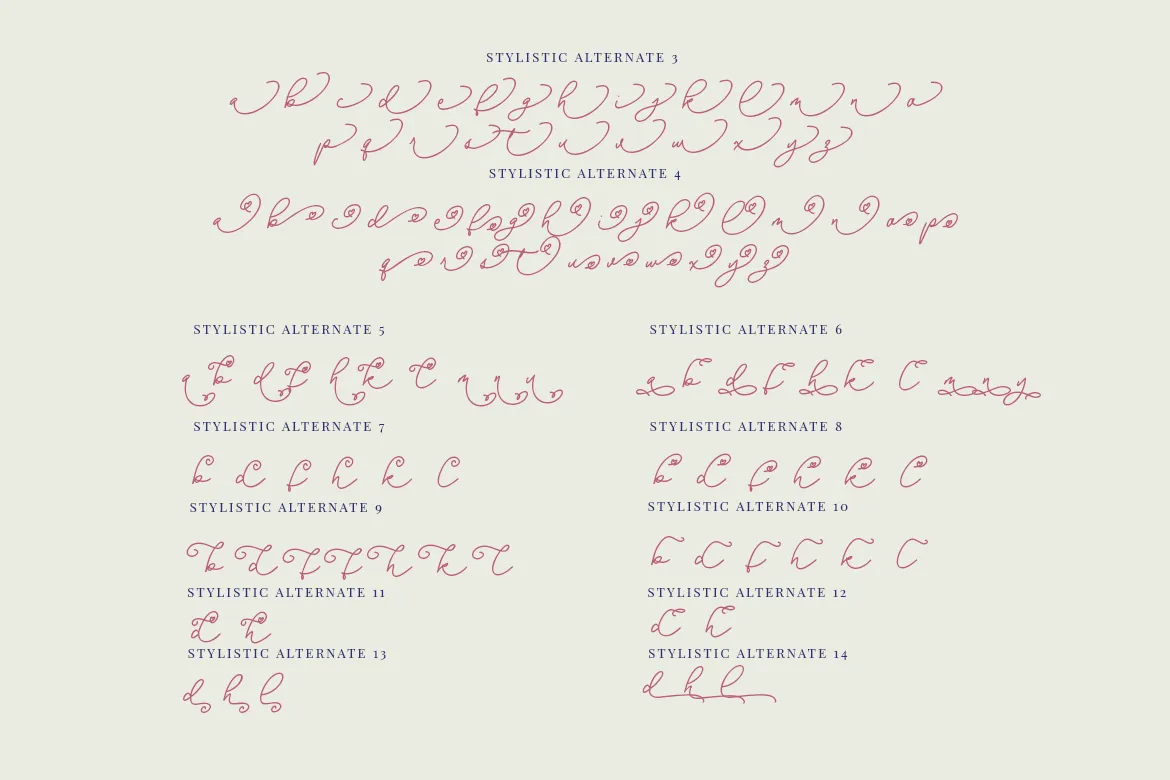 STYLISTIC ALTERNATE 3
a b c d e f g h i j k l m n o
p q r s t u v w x y z
STYLISTIC ALTERNATE 4
a b c d e f g h i j k l m n o p
q r s t u v w x y z
STYLISTIC ALTERNATE 5
a b d f h k l m n y
STYLISTIC ALTERNATE 6
a b d f h k l m n y
STYLISTIC ALTERNATE 7
b d f h k l
STYLISTIC ALTERNATE 8
b d f h k l
STYLISTIC ALTERNATE 9
b d f f h k l
STYLISTIC ALTERNATE 10
b d f h k l
STYLISTIC ALTERNATE 11
d h
STYLISTIC ALTERNATE 12
d h
STYLISTIC ALTERNATE 13
d h l
STYLISTIC ALTERNATE 14
d h l